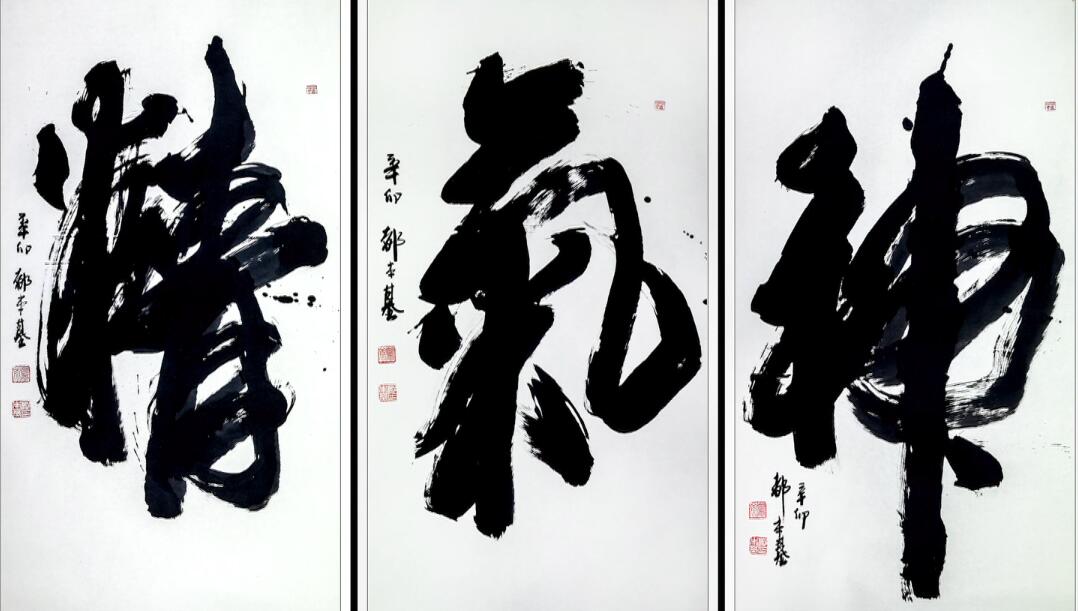 精
辛卯 都本基
氣
辛卯 都本基
神
辛卯
都本基